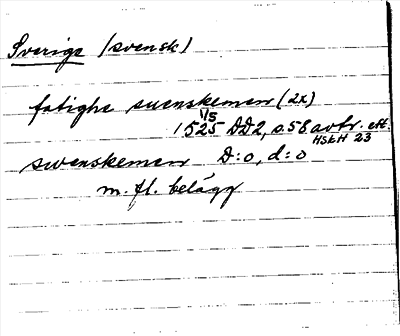 Sverige /svensk/
fatighe suenskemen (2x)
1/5
1525 DD2, s. 58 avtr. ett.
HSkH 23
swenskemen D:o, d:o
m. fl. belägg